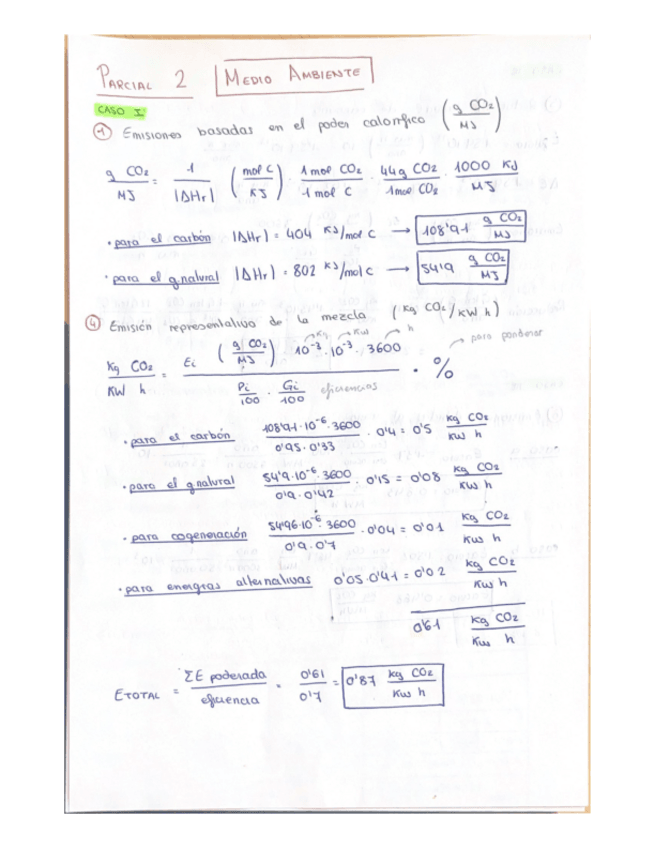 PARCIAL 2 MEDIO AMBIENTE
CASO I
① Emisiones basadas en el poder calorífico (g CO₂/MJ)
g CO₂/MJ = 1/|ΔHr| (mol C/KJ) · 1 mol CO₂/1 mol C · 44g CO₂/1 mol CO₂ · 1000 KJ/MJ
· para el carbón |ΔHr| = 404 KJ/mol C → 108'91 g CO₂/MJ
· para el g.natural |ΔHr| = 802 KJ/mol C → 54'9 g CO₂/MJ
④ Emisión representativa de la mezcla (Kg CO₂/KW h)
Kg KW h para ponderar
Kg CO₂/KW h = Ei (g CO₂/MJ) 10⁻³ · 10⁻³ · 3600 / Pi/100 · Gi/100 eficiencias · %
· para el carbón 108'91·10⁻⁶·3600/0'95·0'33 · 0'4 = 0'5 Kg CO₂/KW h
· para el g.natural 54'9·10⁻⁶·3600/0'9·0'42 · 0'15 = 0'08 Kg CO₂/KW h
· para cogeneración 54'96·10⁻⁶·3600/0'9·0'7 · 0'04 = 0'01 Kg CO₂/KW h
· para energías alternativas 0'05·0'41 = 0'02 Kg CO₂/KW h
0'61 Kg CO₂/KW h
ETOTAL = ΣE poderada/eficiencia = 0'61/0'7 = 0'87 Kg CO₂/KW h